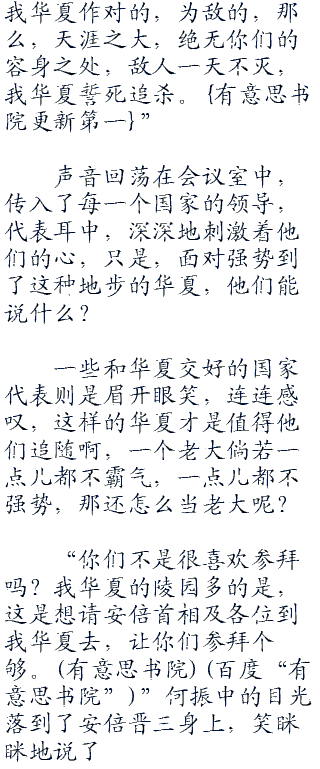 我华夏作对的，为敌的，那
么，天涯之大，绝无你们的
容身之处，敌人一天不灭，
我华夏誓死追杀。{有意思书
院更新第一}”
声音回荡在会议室中，
传入了每一个国家的领导，
代表耳中，深深地刺激着他
们的心，只是，面对强势到
了这种地步的华夏，他们能
说什么？
一些和华夏交好的国家
代表则是眉开眼笑，连连感
叹，这样的华夏才是值得他
们追随啊，一个老大倘若一
点儿都不霸气，一点儿都不
强势，那还怎么当老大呢？
“你们不是很喜欢参拜
吗？我华夏的陵园多的是，
这是想请安倍首相及各位到
我华夏去，让你们参拜个
够。(有意思书院)(百度“有
意思书院”)”何振中的目光
落到了安倍晋三身上，笑眯
眯地说了